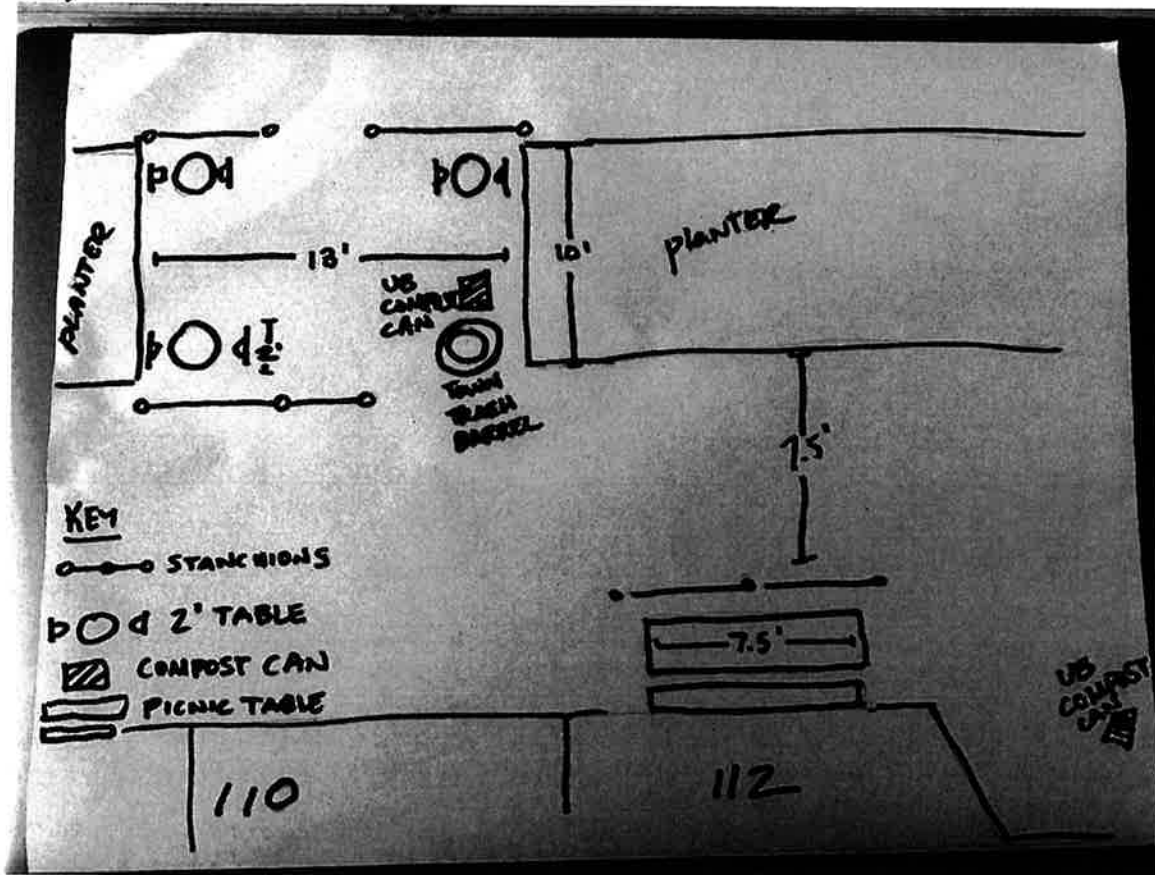 PLANTER
13'
10'
planter
UB
COMPOST
CAN
2'
TOWN
TRASH
BARREL
7.5'
KEY
STANCHIONS
2' TABLE
COMPOST CAN
PICNIC TABLE
7.5'
UB
COMPOST
CAN
110
112